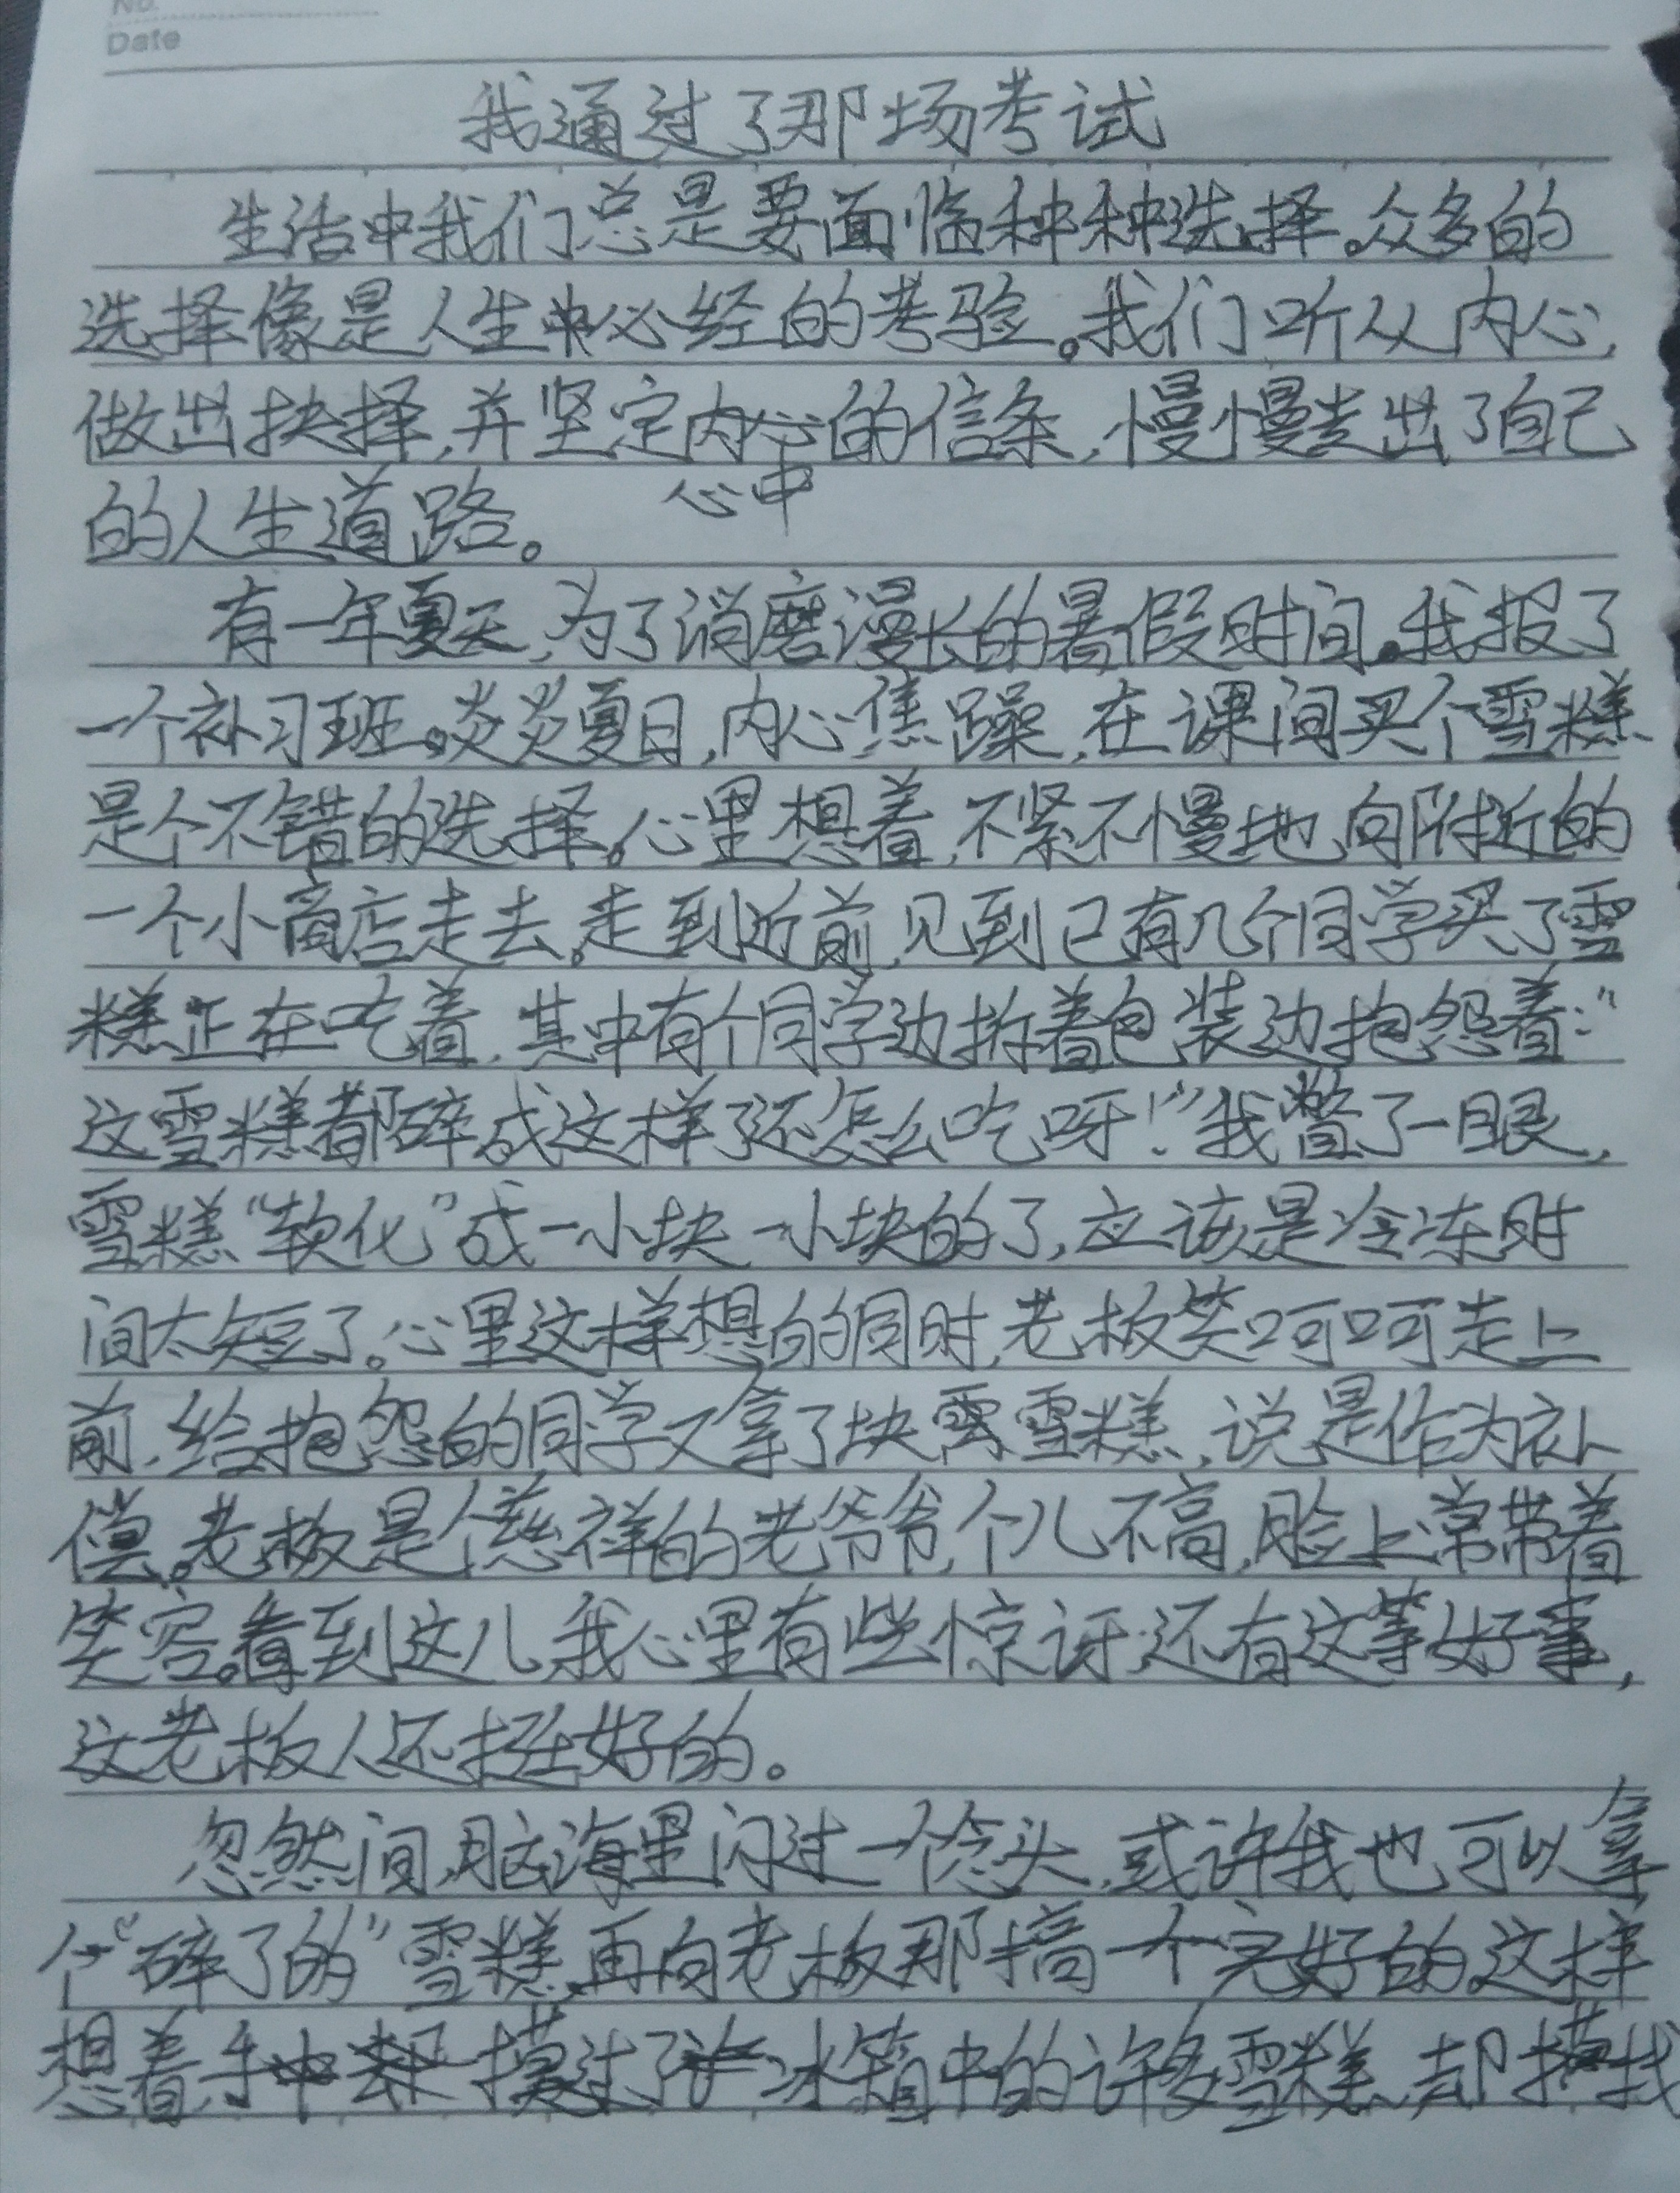 No.
Date
我通过了那场考试
生活中我们总是要面临种种选择。众多的
选择像是人生中必经的考验。我们听从内心,
做出抉择,并坚定内心的信条,慢慢走出了自己
心中
的人生道路。
有一年夏天,为了消磨漫长的暑假时间。我报了
一个补习班。炎炎夏日,内心焦躁,在课间买个雪糕
是个不错的选择。心里想着,不紧不慢地向附近的
一个小商店走去。走到近前,见到已有几个同学买了雪
糕正在吃着,其中有个同学边拆着包装边抱怨着:“
这雪糕都碎成这样了还怎么吃呀!”我瞥了一眼,
雪糕“软化”成一小块一小块的了,应该是冷冻时
间太短了。心里这样想的同时,老板笑呵呵走上
前,给抱怨的同学又拿了块雪糕,说是作为补
偿。老板是个慈祥的老爷爷,个儿不高,脸上常带着
笑容。看到这儿,我心里有些惊讶,还有这等好事,
这老板人还挺好的。
忽然间,脑海里闪过一个念头,或许我也可以拿
个“碎了的”雪糕,再向老板那搞一个完好的。这样
想着,手中却摸过了冰箱中的许多雪糕,却摸找